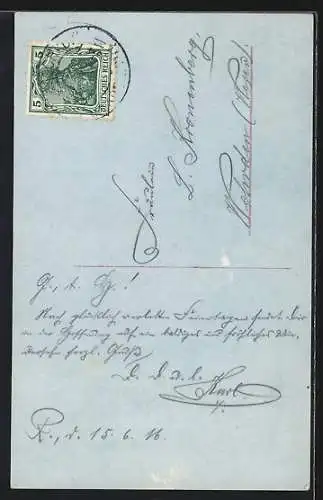 5 DEUTSCHES REICH 5
Fräulein
L. Kronenberg,
Wehrden (Weser).
G., d. H.!
Nach glücklich verlebten Feiertagen sendet Dir
in der Hoffnung auf ein baldiges und fröhliches Wie-
dersehn herzl. Grüße
D. D. l. Karl
R., d. 15.6.16.